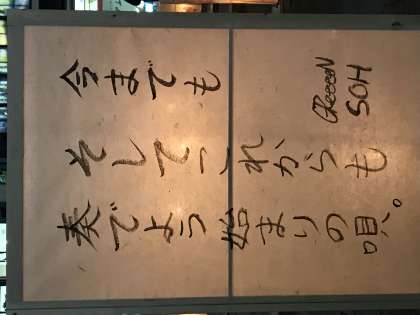 今までも
そしてこれからも
奏でよう始まりの唄。
GReeeeN
SOH